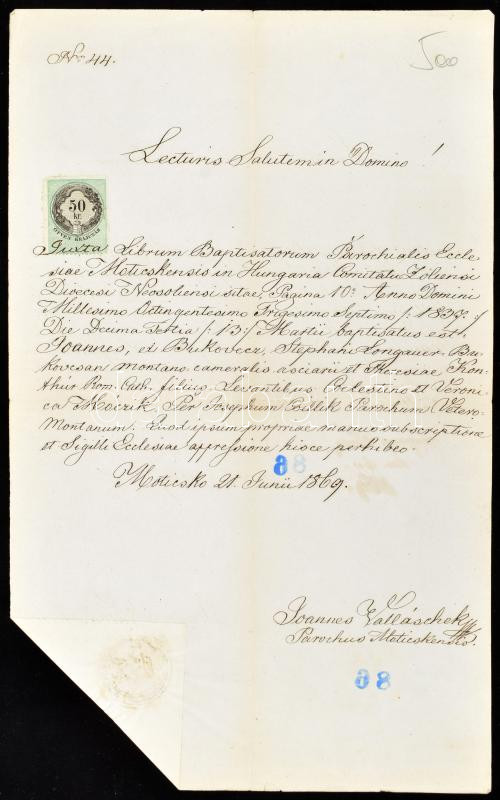 Nr. 44.
500
Lecturis Salutem in Domino!
50
kr.
ÖTVEN KRAJCZÁR
Juxta Librum Baptisatorum Parochialis Eccle
siae Moticskensis in Hungaria Comitatu Zoliensi
Dioecesi Neosoliensi sitae, Pagina 10a Anno Domini
Millesimo Octingentesimo Trigesimo Septimo /: 1837:/
Die Decima Tertia /: 13:/ Martii baptisatus est
Joannes, ex Bukovecz, Stephani Longauer Bu
kovcsan montano cameralis asciarii et Theresiae Kron
thür Rom. Cath. filius, Levantibus Celestino et Veroni
ca Móczik, Per Josephum Csillek Parochum Vetero
Montanum. Quod ipsum propriae manus subscriptione
et Sigilli Ecclesiae appressione hisce perhibeo.
88
Moticsko 21. Junii 1869.
Joannes Valláschek
Parochus Moticskensis.
68